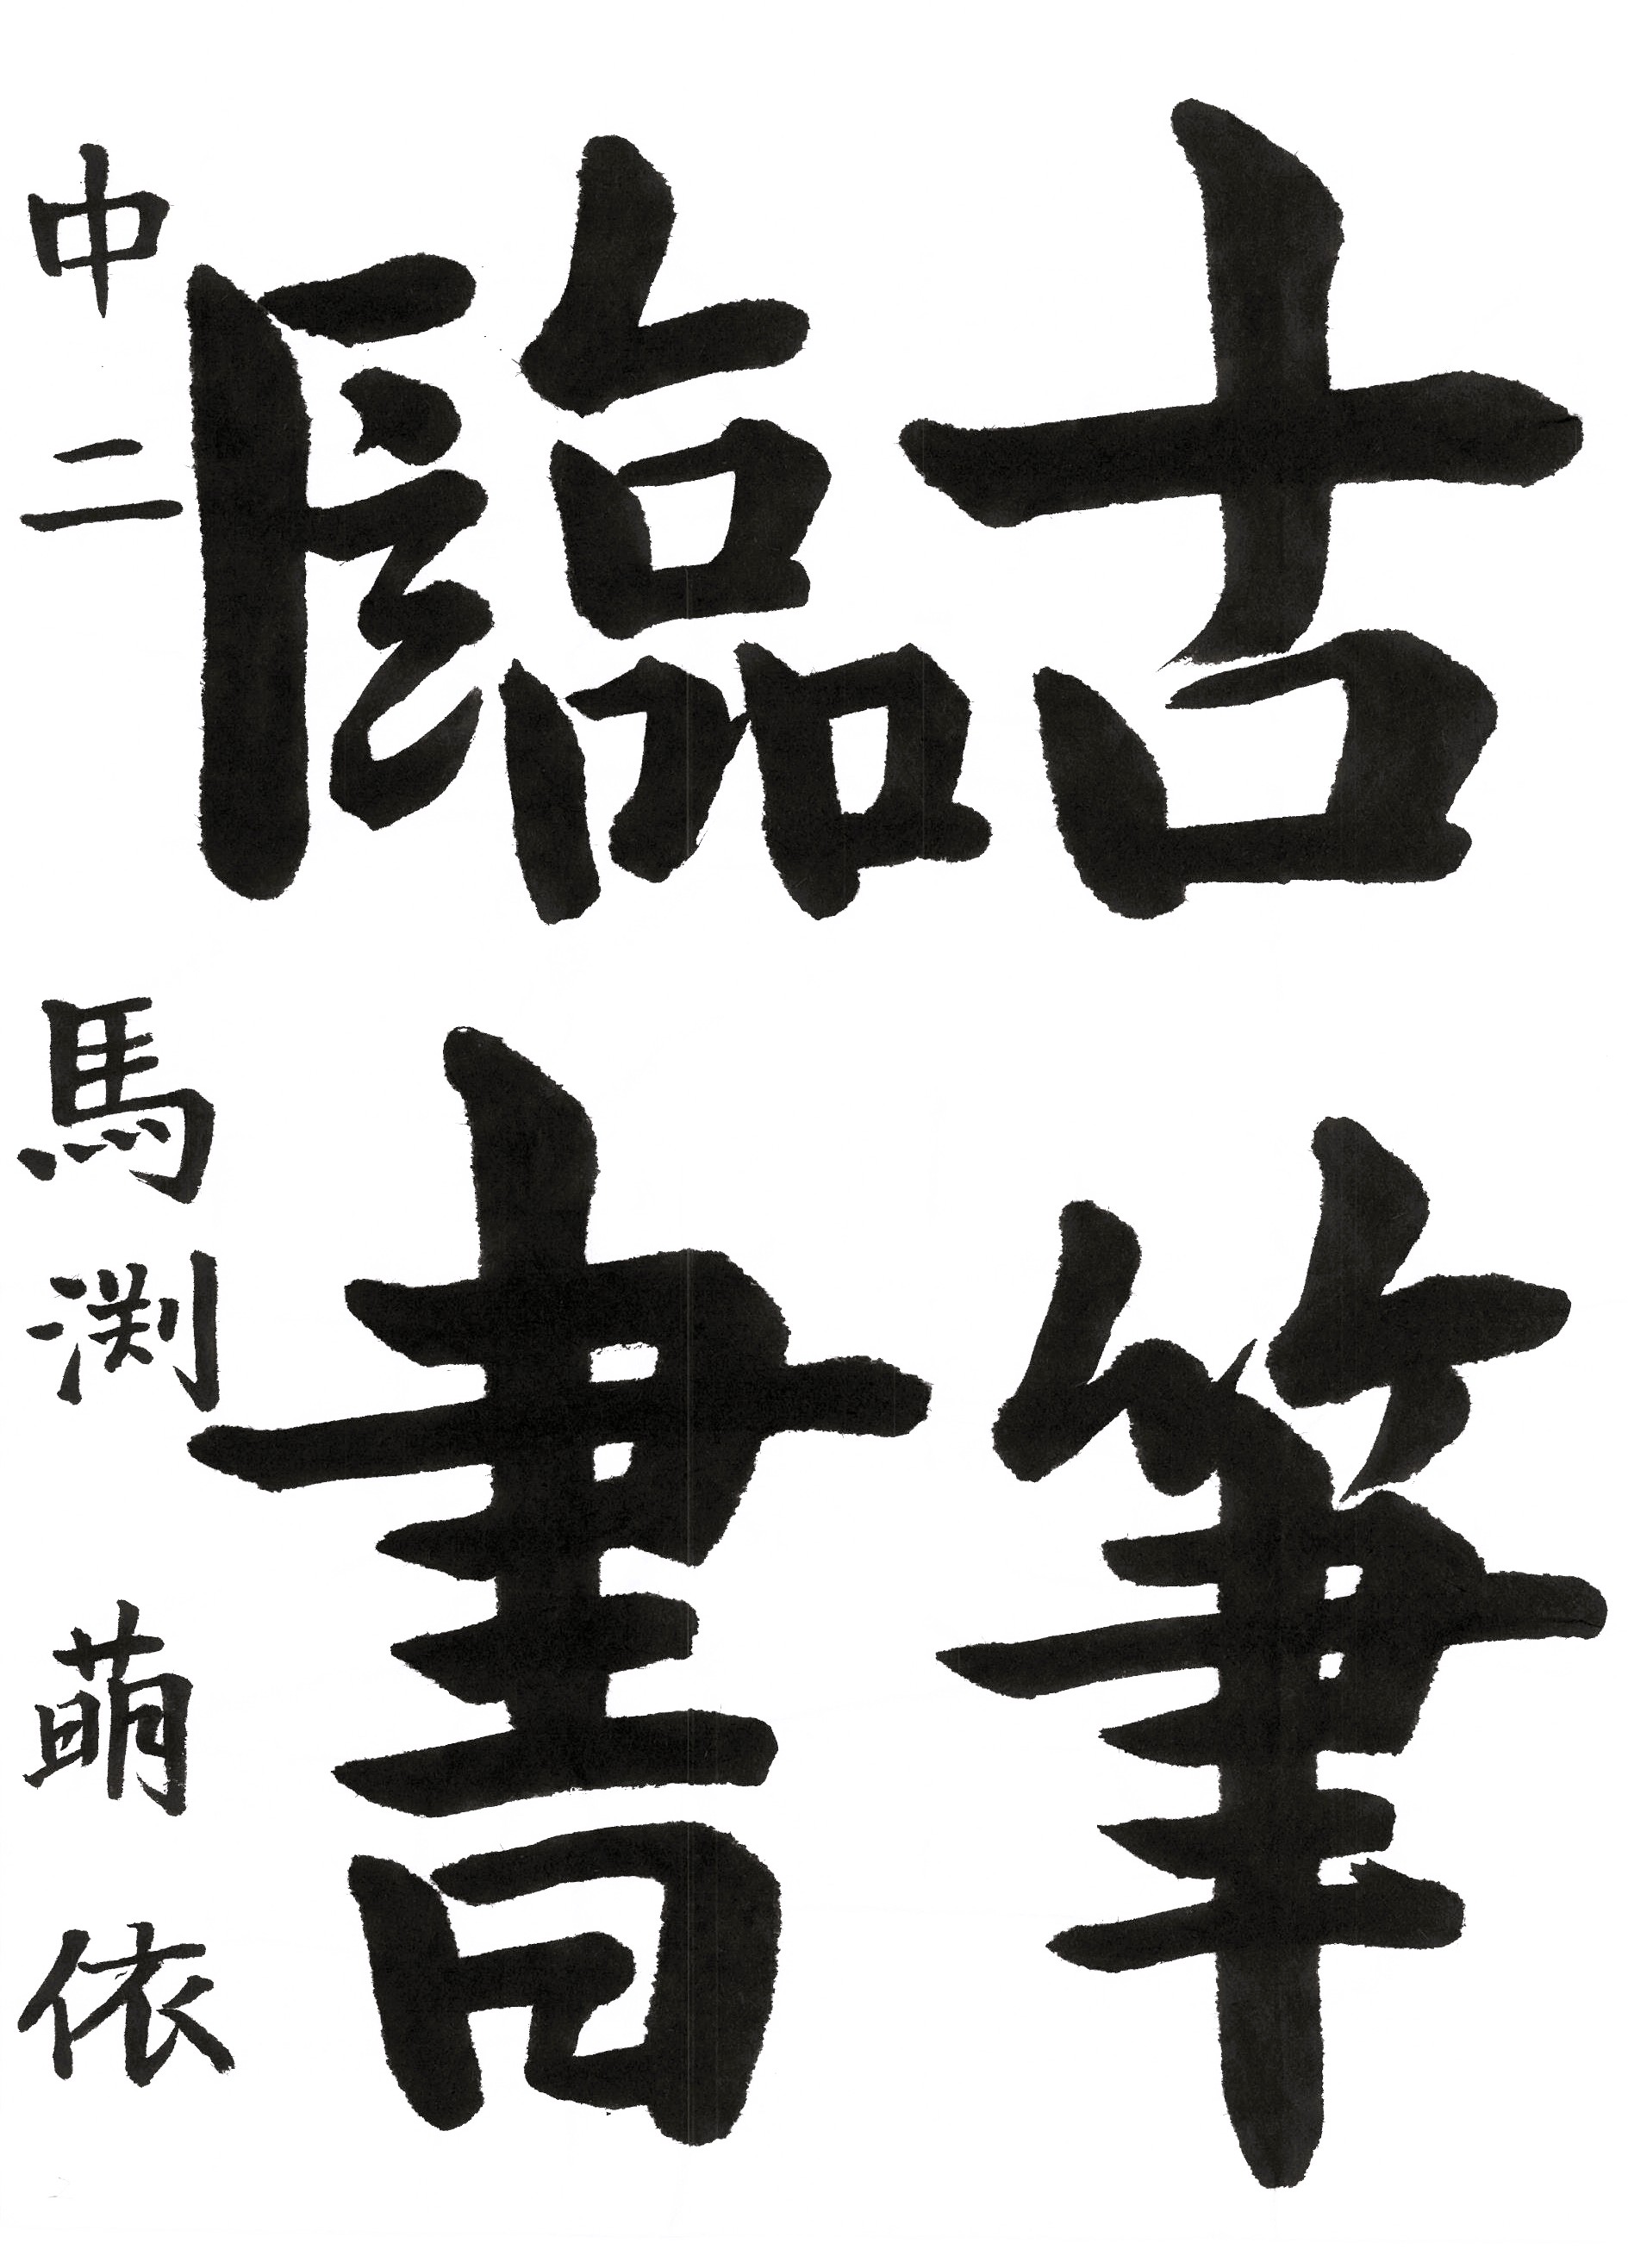 古筆
臨書
中二 馬渕 萌依